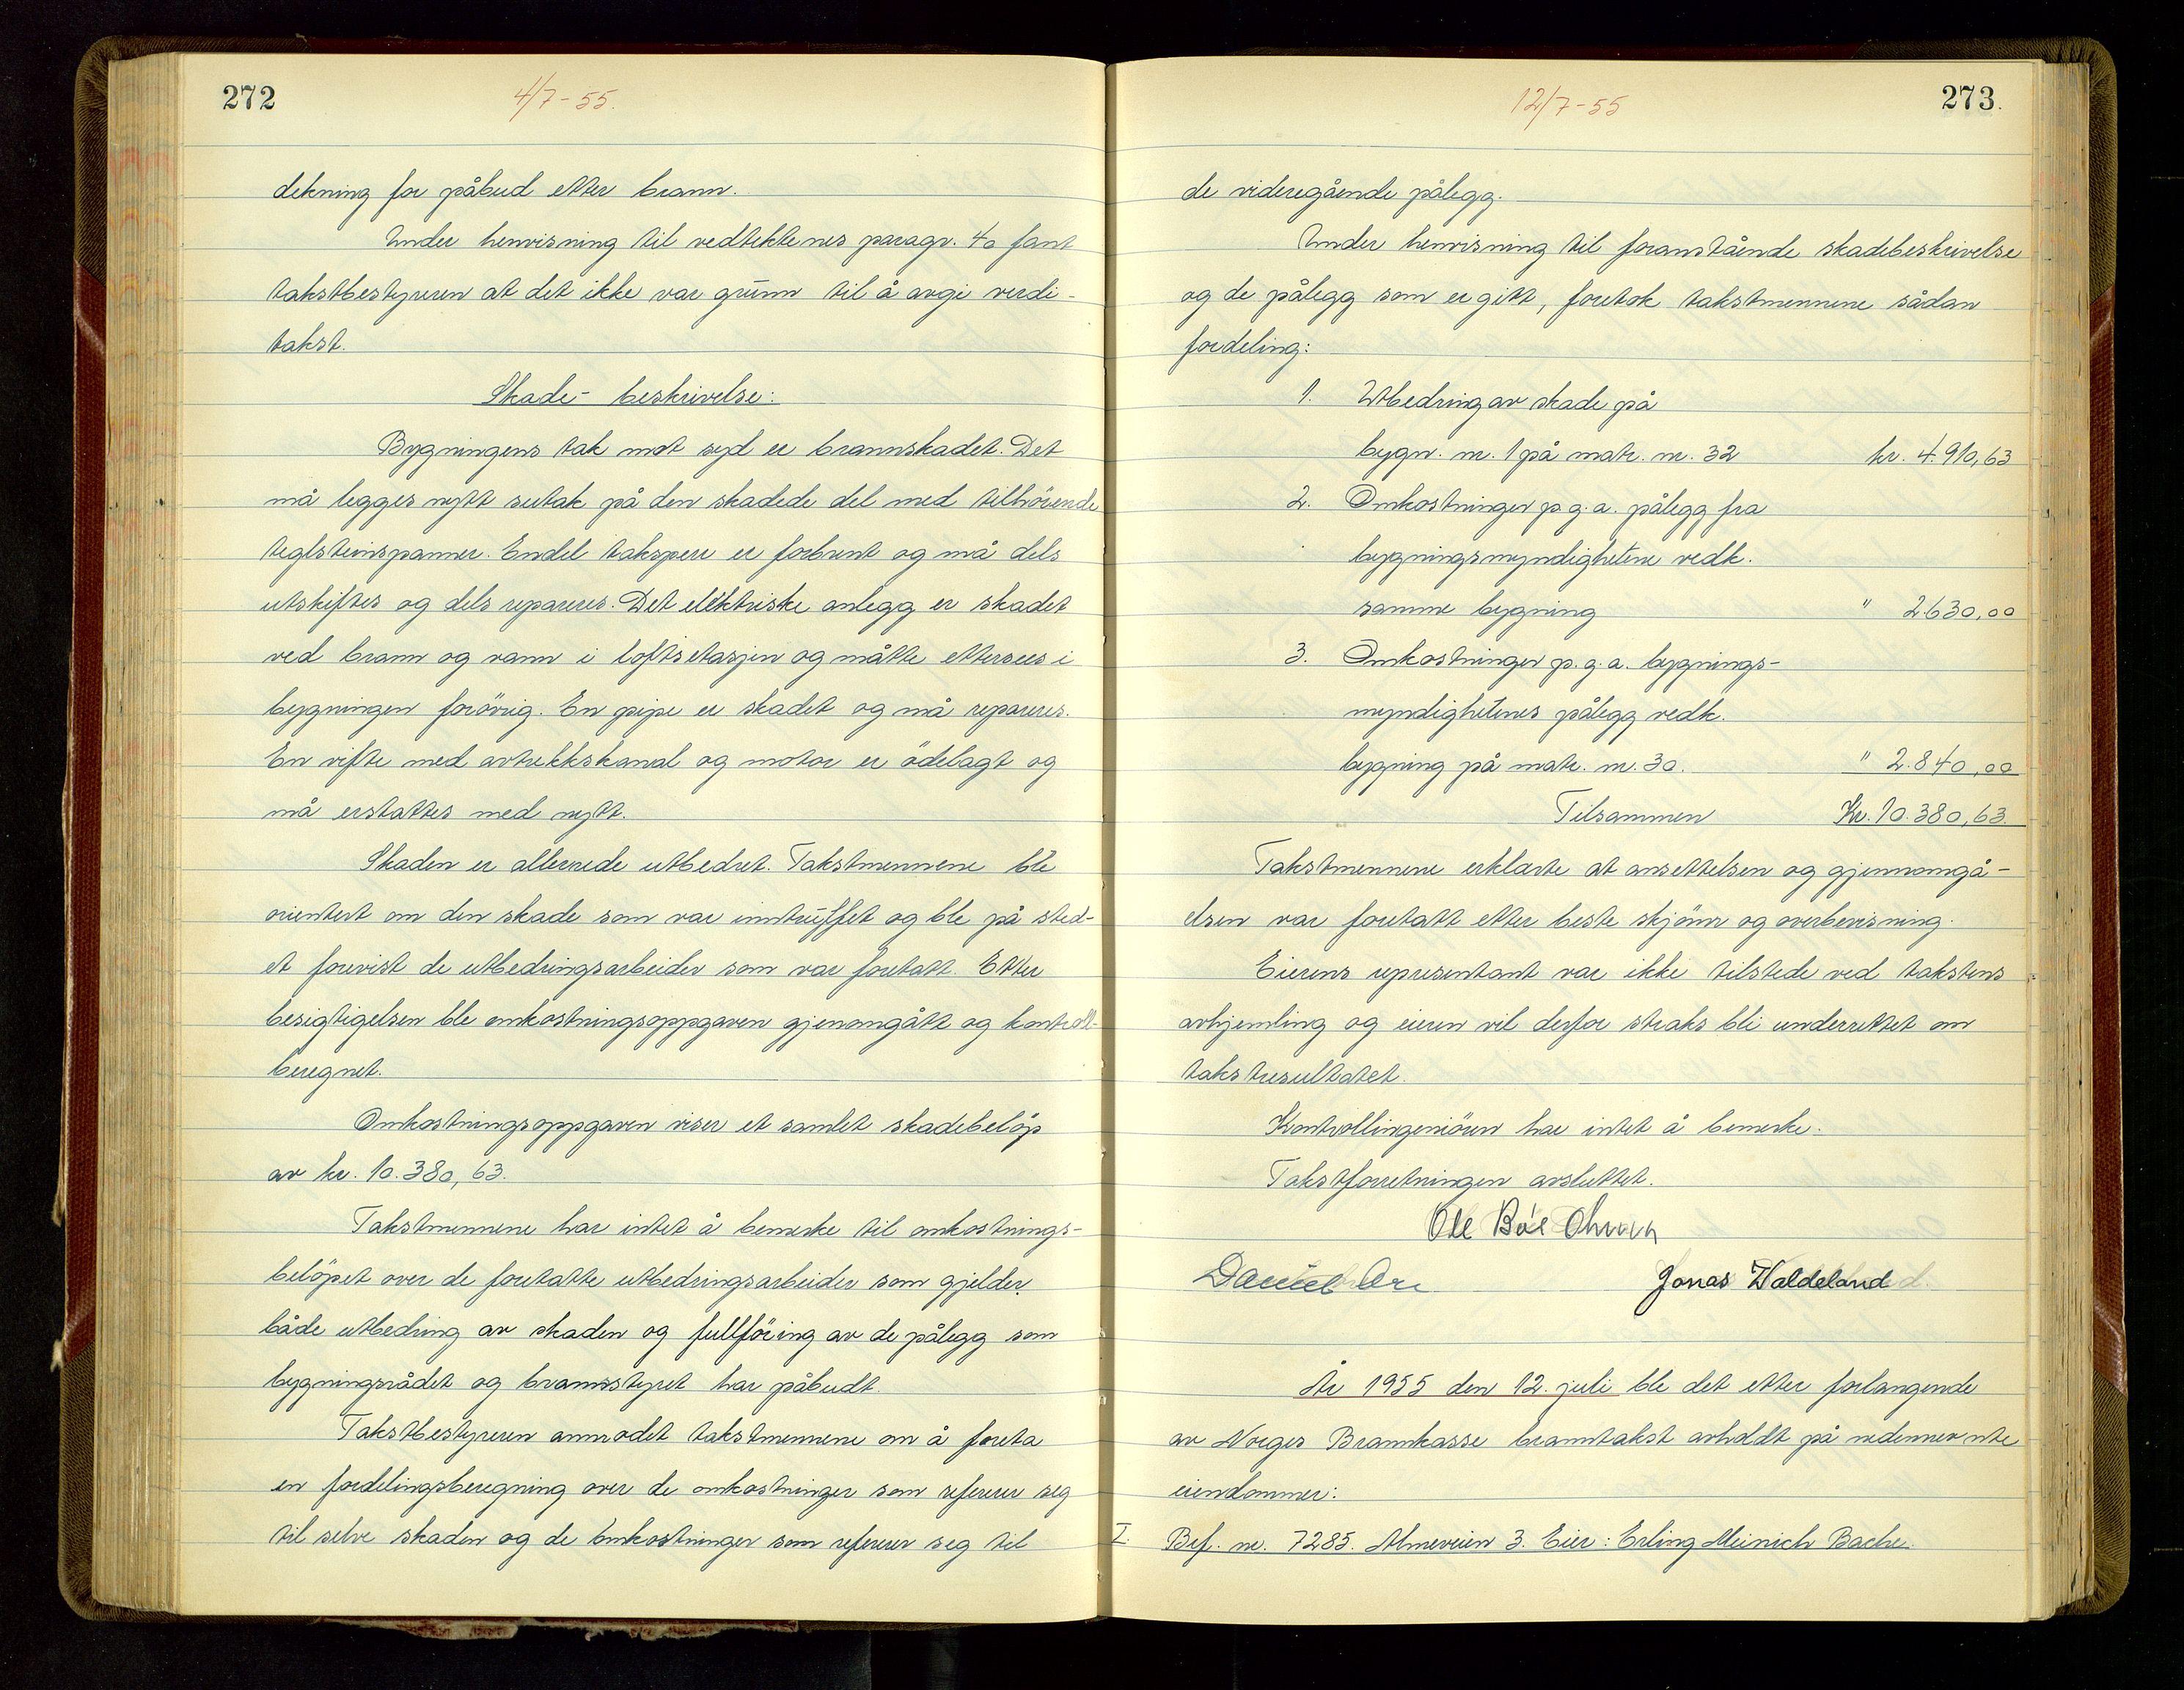 272
4/7-55.
dekning for påbud etter brann.
Under henvisning til vedtektenes paragr. 40 fant
takstbestyreren at det ikke var grunn til å avgi verdi-
takst.
Skade- beskrivelse:
Bygningens tak mot syd er brannskadet. Det
må legges nytt sutak på den skadede del med tilhörende
teglsteinspanner. Endel taksperr er forbrent og må dels
utskiftes og dels repareres. Det elektriske anlegg er skadet
ved brann og vann i loftsetasjen og måtte ettersees i
bygningen forövrig. En pipe er skadet og må repareres.
En vifte med avtrekkskanal og motor er ödelagt og
må erstattes med nytt.
Skaden er allerede utbedret. Takstmennene ble
orientert om den skade som var inntruffet og ble på sted-
et forevist de utbedringsarbeider som var foretatt. Etter
besigtigelsen ble omkostningsoppgaven gjenomgått og kontroll-
beregnet.
Omkostningsoppgaven viser et samlet skadebelöp
av kr. 10.380,63.
Takstmennene har intet å bemerke til omkostnings-
belöpet over de foretatte utbedringsarbeider som gjelder
både utbedring av skaden og fullföring av de pålegg som
bygningsrådet og brannstyret har påbudt.
Takstbestyreren anmodet takstmennene om å foreta
en fordelingsberegning over de omkostninger som referer seg
til selve skaden og de omkostninger som referer seg til
12/7-55
273.
de videregående pålegg.
Under henvisning til foranstående skadebeskrivelse
og de pålegg som er gitt, foretok takstmennene sådan
fordeling:
1. Utbedring av skade på
bygn. nr. 1 på matr. nr. 32 kr. 4.910,63
2. Omkostninger p.g.a. pålegg fra
bygningsmyndighetene vedk.
samme bygning " 2.630,00
3. Omkostninger p.g.a. bygnings-
myndighetenes pålegg vedk.
bygning på matr. nr. 30. " 2.840,00
Tilsammen Kr. 10.380,63.
Takstmennene erklærte at ansettelsen og gjennomgå-
elsen var foretatt etter beste skjönn og overbevisning.
Eierens representant var ikke tilstede ved takstens
avhjemling og eieren vil derfor straks bli underrettet om
takstresultatet.
Kontrollingeniören har intet å bemerke.
Takstforretningen avsluttet.
Ole Bøe
Daniel Jonas Waldeland
År 1955 den 12. juli ble det etter forlangende
av Norges Brannkasse branntakst avholdt på nedennevnte
eiendommer:
I. Bef. nr. 7285. Almeveien 3. Eier: Erling Meinich Bache.